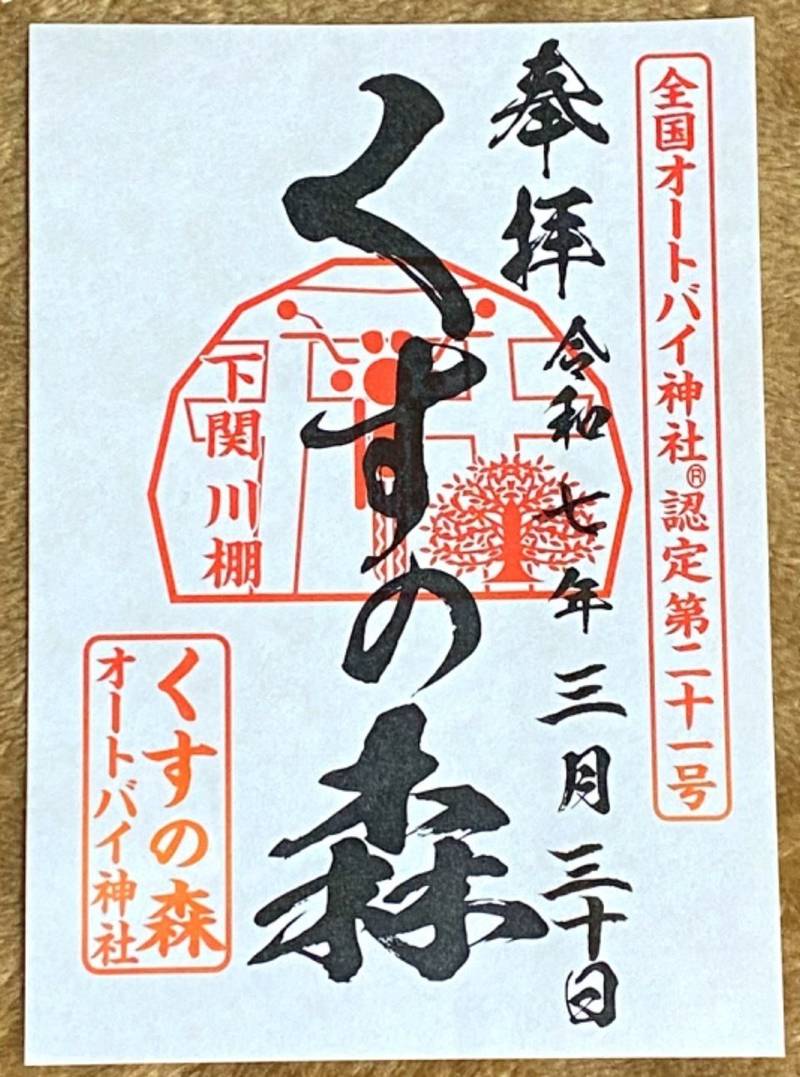 全国オートバイ神社®認定第二十一号
奉拝 令和七年三月三十日
くすの森
下関川棚
くすの森
オートバイ神社